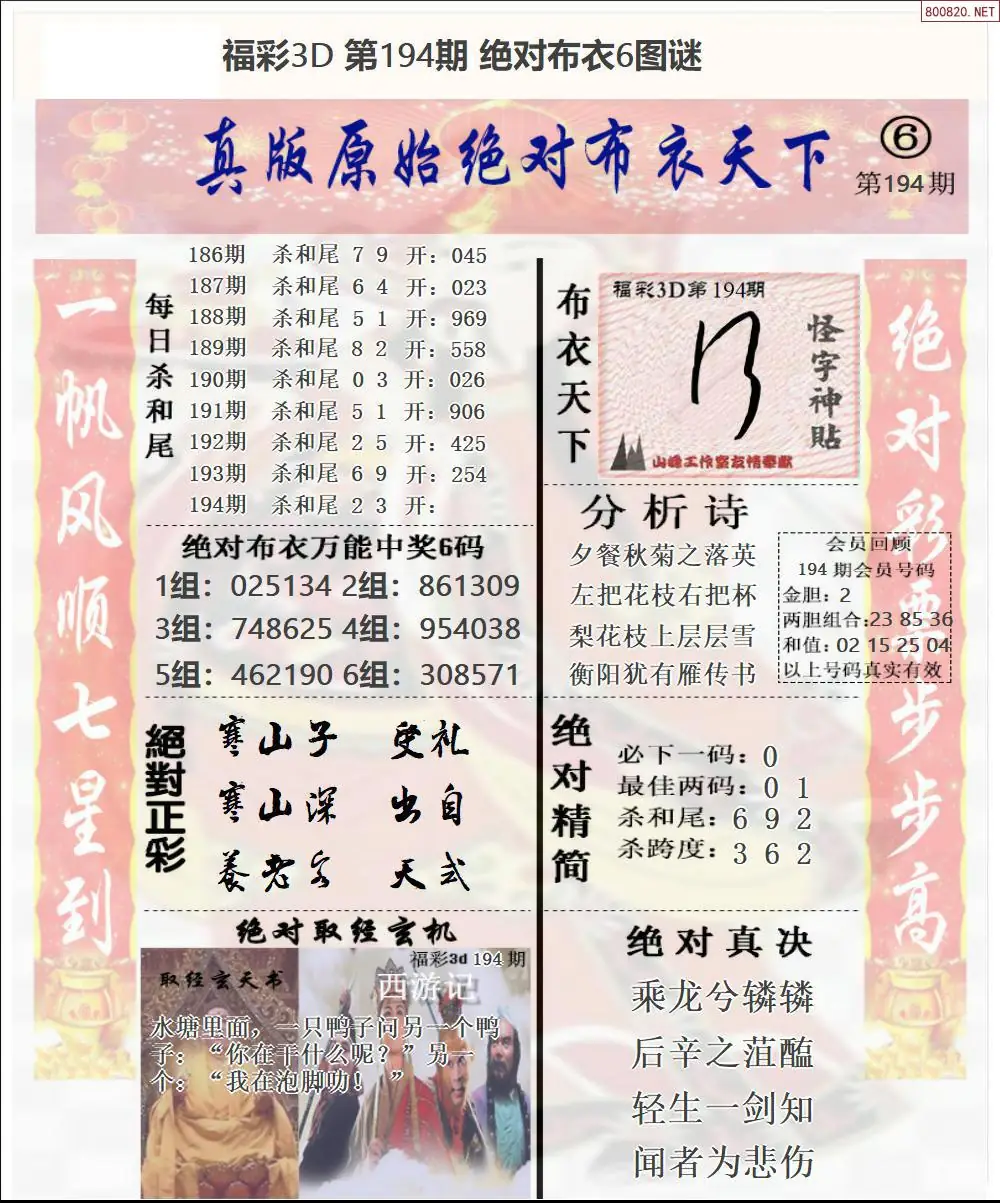 800820.NET
福彩3D 第194期 绝对布衣6图谜
真版原始绝对布衣天下
6
第194期
一帆风顺七星到
每日杀和尾
186期 杀和尾 7 9 开：045
187期 杀和尾 6 4 开：023
188期 杀和尾 5 1 开：969
189期 杀和尾 8 2 开：558
190期 杀和尾 0 3 开：026
191期 杀和尾 5 1 开：906
192期 杀和尾 2 5 开：425
193期 杀和尾 6 9 开：254
194期 杀和尾 2 3 开：
绝对布衣万能中奖6码
1组：025134 2组：861309
3组：748625 4组：954038
5组：462190 6组：308571
絕對正彩
寒山子 受礼
寒山深 出自
养老名 天式
绝对取经玄机
福彩3d 194期
取经玄天书
西游记
水塘里面，一只鸭子问另一个鸭
子：“你在干什么呢？”另一
个：“我在泡脚叻！ ”
布衣天下
福彩3D第194期
怪字神贴
山峰工作室友情奉献
分析诗
夕餐秋菊之落英
左把花枝右把杯
梨花枝上层层雪
衡阳犹有雁传书
会员回顾
194期会员号码
金胆：2
两胆组合:23 85 36
和值：02 15 25 04
以上号码真实有效
绝对精简
必下一码：0
最佳两码：0 1
杀和尾：6 9 2
杀跨度：3 6 2
绝对真决
乘龙兮辚辚
后辛之菹醢
轻生一剑知
闻者为悲伤
绝对彩票步步高